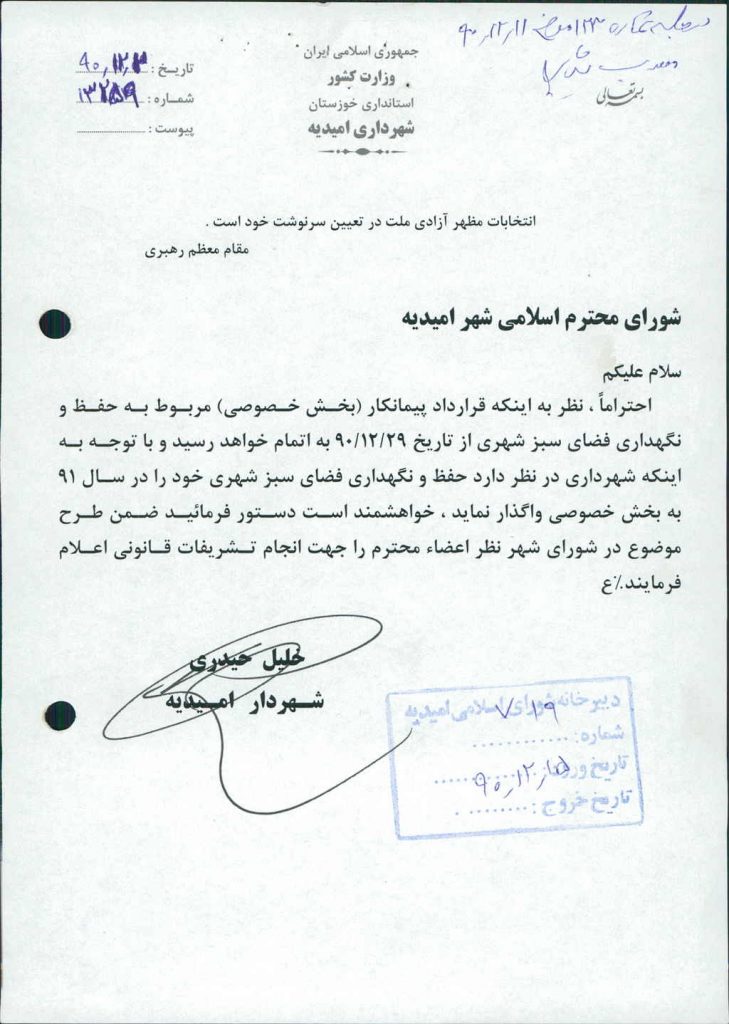 در جلسه شماره ۱۲۳ مورخ ۹۰،۱۲،۱۱
بسمه تعالی
جمهوری اسلامی ایران
وزارت کشور
استانداری خوزستان
شهرداری امیدیه
تاریخ : ۹۰،۱۲،۳
شماره : ۱۳۲۵۹
پیوست :
انتخابات مظهر آزادی ملت در تعیین سرنوشت خود است .
مقام معظم رهبری
شورای محترم اسلامی شهر امیدیه
سلام علیکم
احتراماً ، نظر به اینکه قرارداد پیمانکار (بخش خصوصی) مربوط به حفظ و
نگهداری فضای سبز شهری از تاریخ ۹۰/۱۲/۲۹ به اتمام خواهد رسید و با توجه به
اینکه شهرداری در نظر دارد حفظ و نگهداری فضای سبز شهری خود را در سال ۹۱
به بخش خصوصی واگذار نماید ، خواهشمند است دستور فرمائید ضمن طرح
موضوع در شورای شهر نظر اعضاء محترم را جهت انجام تشریفات قانونی اعلام
فرمایند.٪ع
خلیل حیدری
شهردار امیدیه
دبیرخانه شورای اسلامی امیدیه
شماره: ............ ۷۱۹
تاریخ ورود: ............ ۹۰،۱۲،۱۵
تاریخ خروج : ......... .